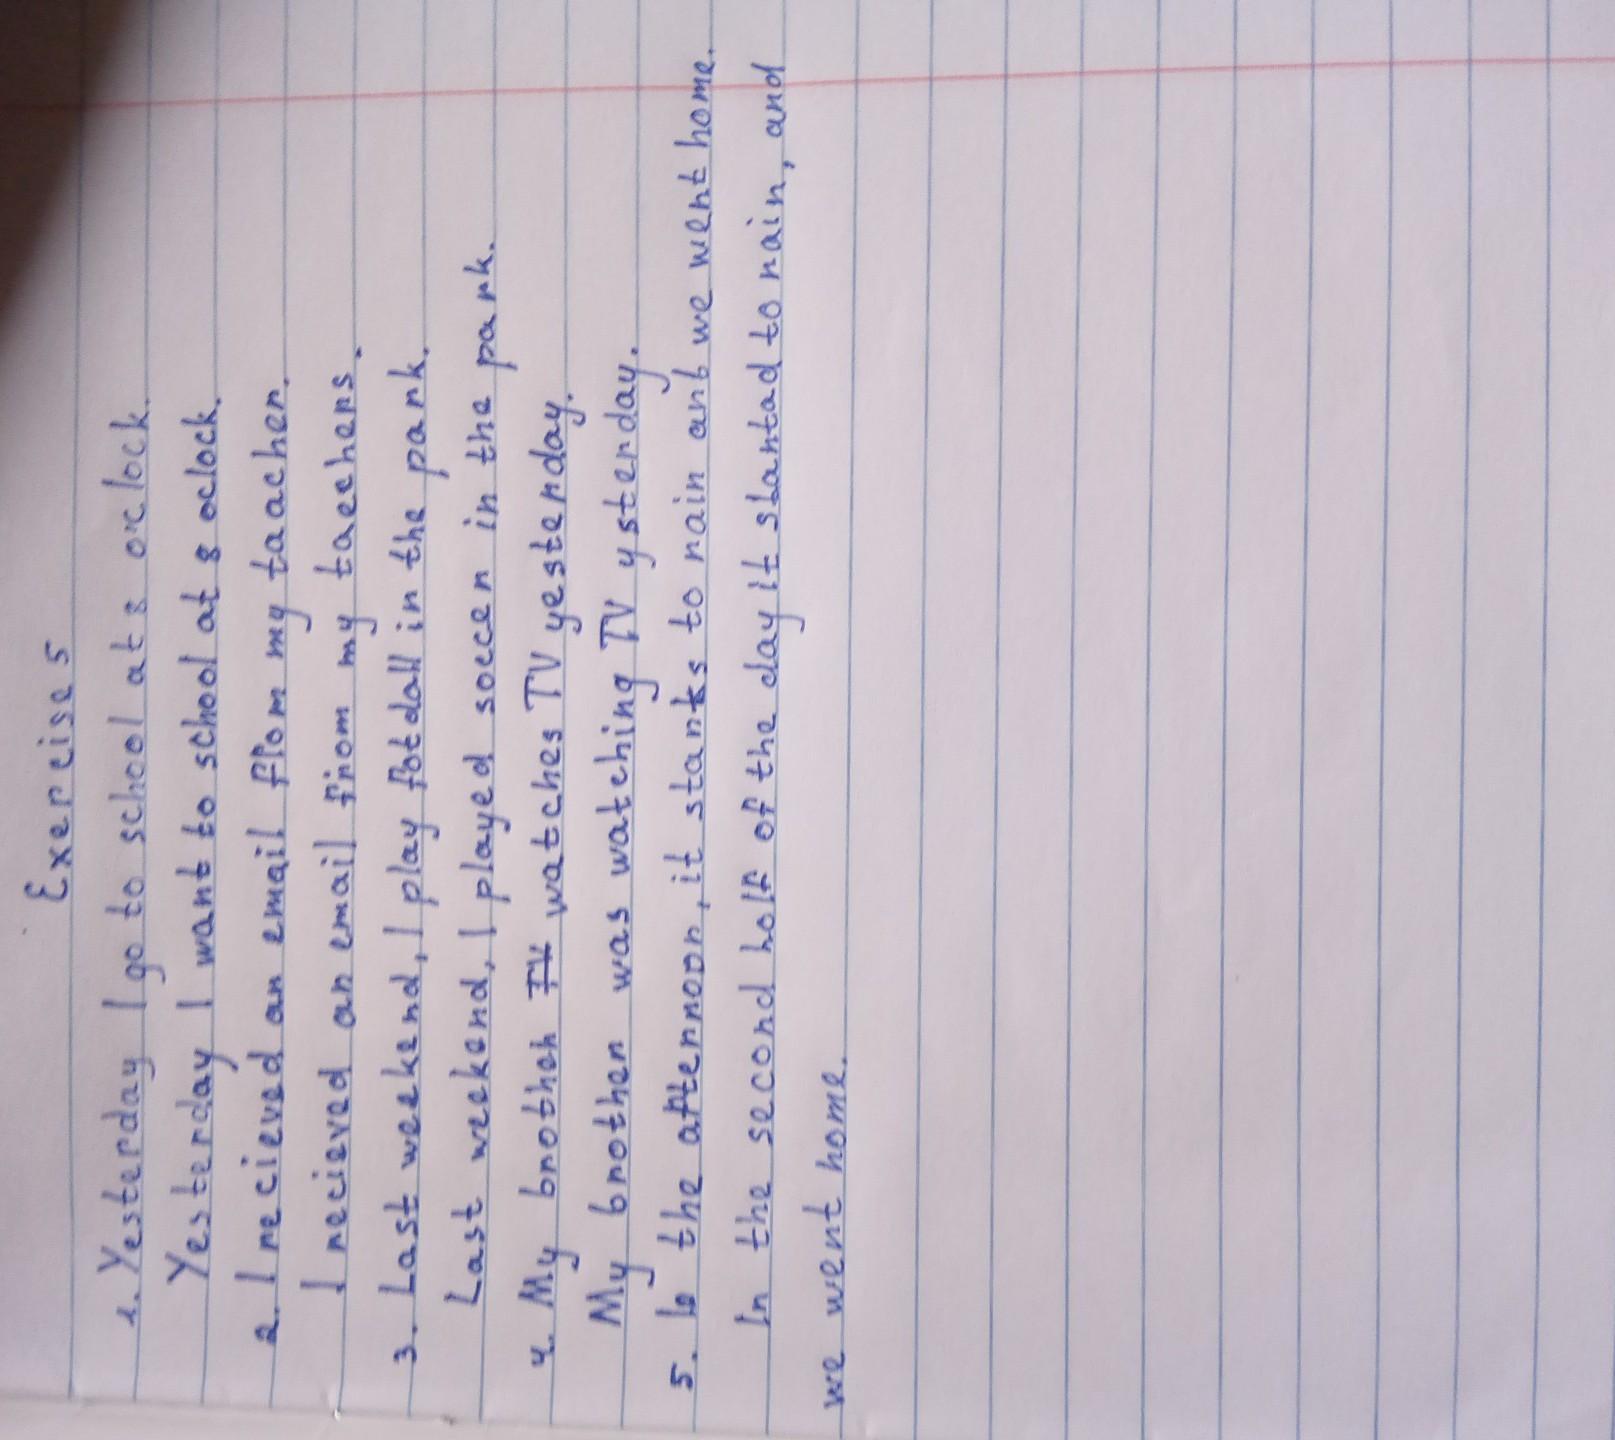 Exercise 5
1. Yesterday I go to school at 8 o'clock.
Yesterday I want to school at 8 oclock.
2. I recieved an email flom my taacher.
I recieved an email from my taechers.
3. Last weekend, I play fotdall in the park.
Last weekend, I played soccer in the park.
4. My brother TV watches TV yesterday.
My brother was watching TV ysterday.
5. In the afternoon, it starts to rain anb we went home.
In the second holf of the day it startad to rain, and
we went home.